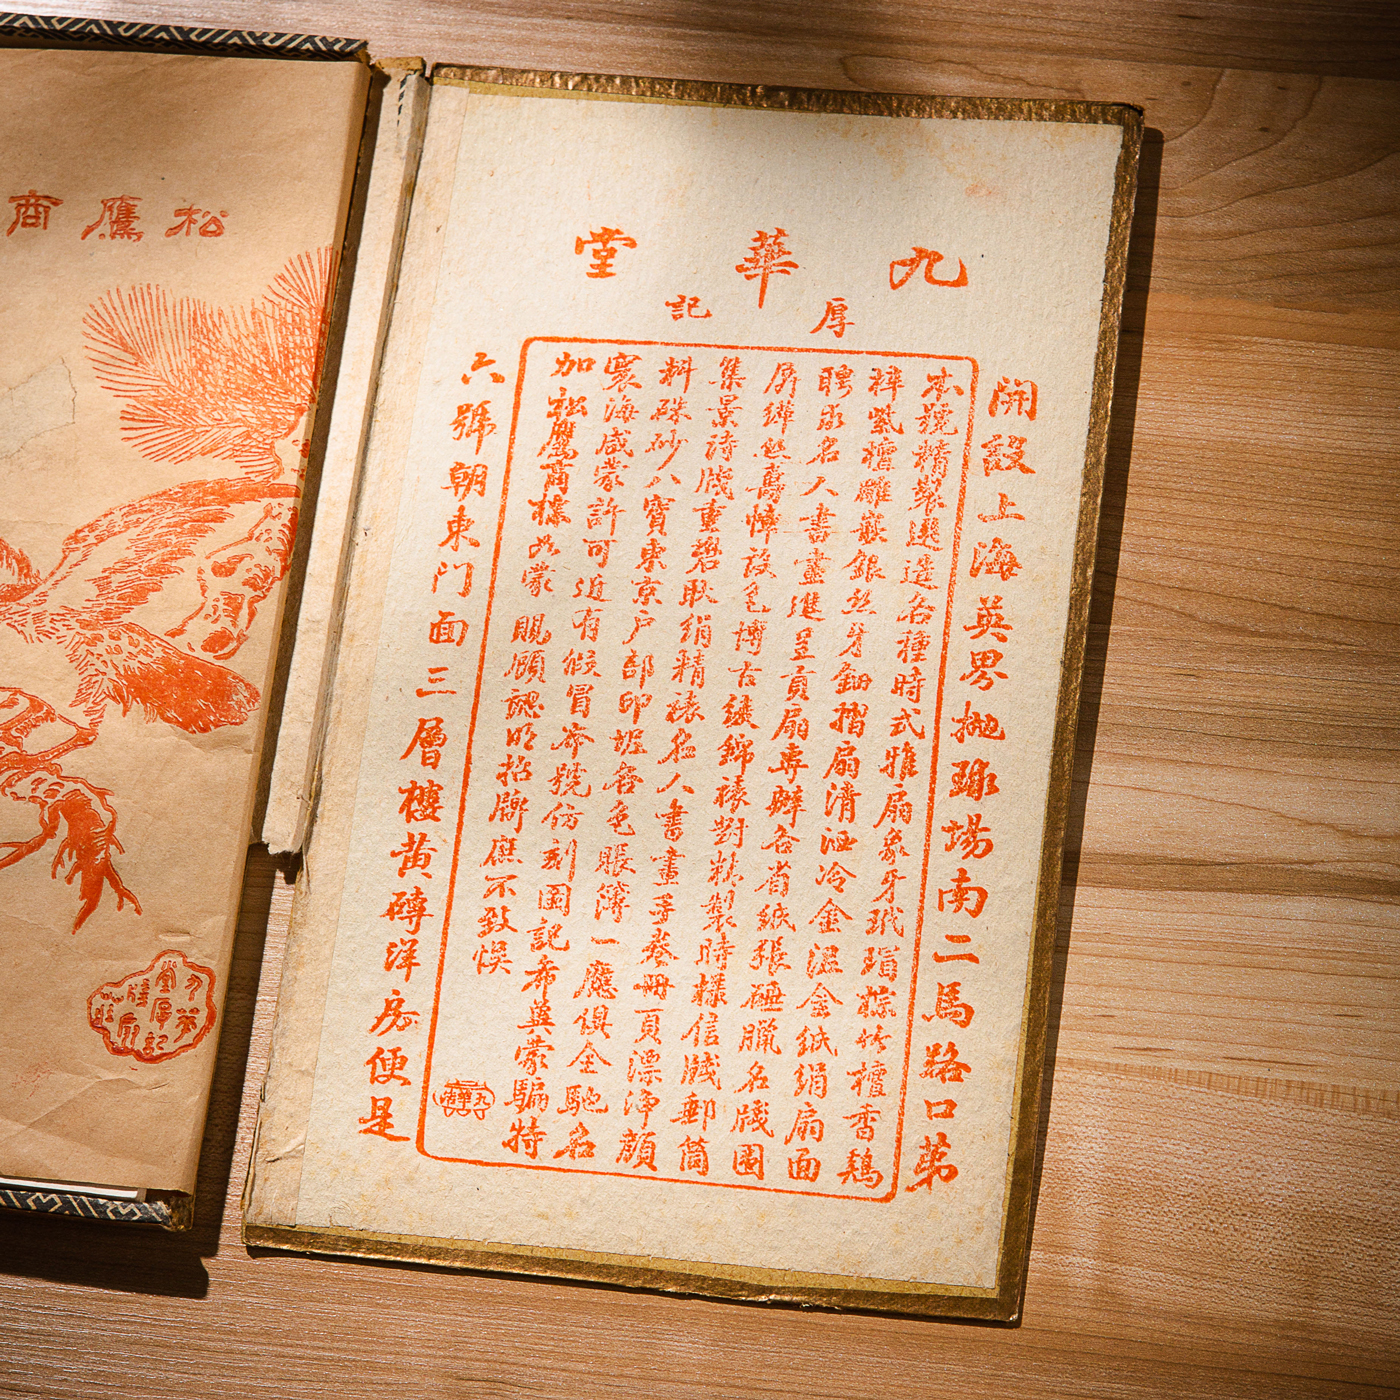 九華堂
厚記
開設上海英界拋球場南二馬路口第
本號精製選造各種時式雅扇象牙玳瑁棕竹檀香鷄
梓紫檀雕嵌銀絲牙鈿摺扇清洒冷金泥金紙絹扇面
聘求名人書畫進呈貢扇專辦各省紙張硾臘名牋圍
屏繂絲壽幛設色博古綾錦裱對精製時樣信牋郵筒
集景詩牋重礬耿絹精裱名人書畫手卷冊頁漂淨顏
料硃砂八寶東京戶部印坭各色賬簿一應俱全馳名
寰海咸蒙許可近有假冒本號仿刻圖記希冀蒙騙特
加松鷹商標如蒙 賜顧認明招牌庶不致悞
六號朝東門面三層樓黃磚洋房便是
松鷹商
九華堂厚記